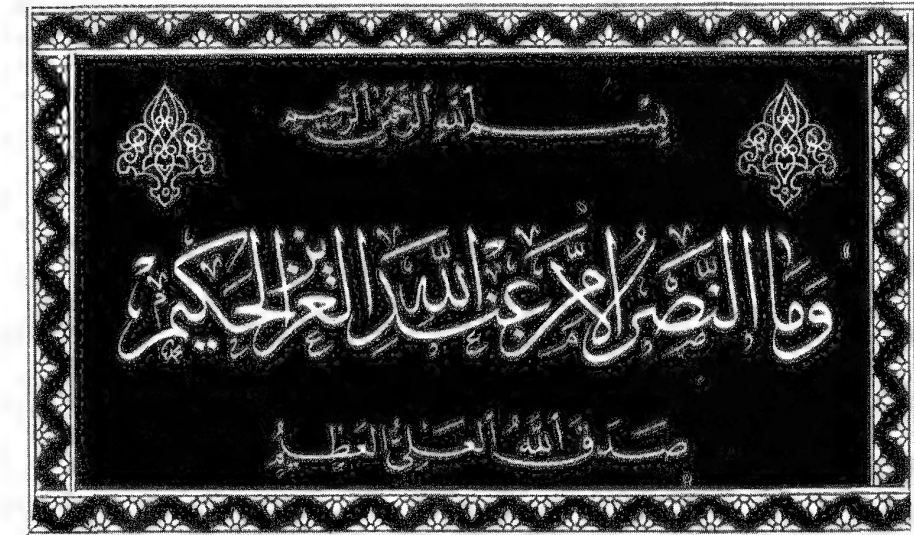 بِسْمِ اللَّهِ الرَّحْمَٰنِ الرَّحِيمِ
وَمَا النَّصْرُ إِلَّا مِنْ عِنْدِ اللَّهِ الْعَزِيزِ الْحَكِيمِ
صَدَقَ اللَّهُ الْعَلِيُّ الْعَظِيمُ